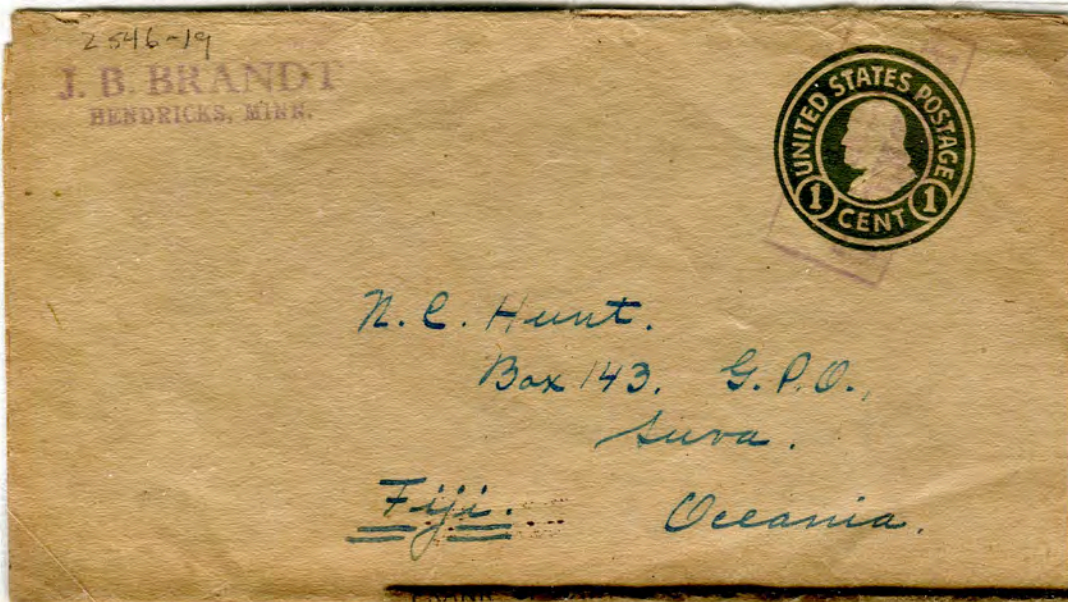 2546-19
J. B. BRANDT
HENDRICKS, MINN.
UNITED STATES POSTAGE
1 CENT 1
N. C. Hunt.
Box 143. G.P.O.,
Suva.
Fiji.
Oceania.